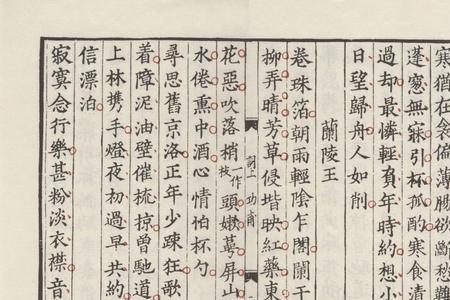 寒猶在衾偏薄腸欲斷愁
蓬窓無寐引杯孤酌寒食清
過却最憐輕負年時約想小
日望歸舟人如削
蘭陵王
卷珠箔朝雨輕陰乍閣闌干
柳弄晴芳草侵堦映紅藥東
詞上
功甫
花惡吹落梢頭嫩萼屏山
枝作
水倦熏中酒心情怕杯勺
尋思舊京洛正年少踈狂歌
着障泥油壁催梳掠曾馳道
上林携手燈夜初過早共約
信漂泊
寂寞念行樂甚粉淡衣襟音